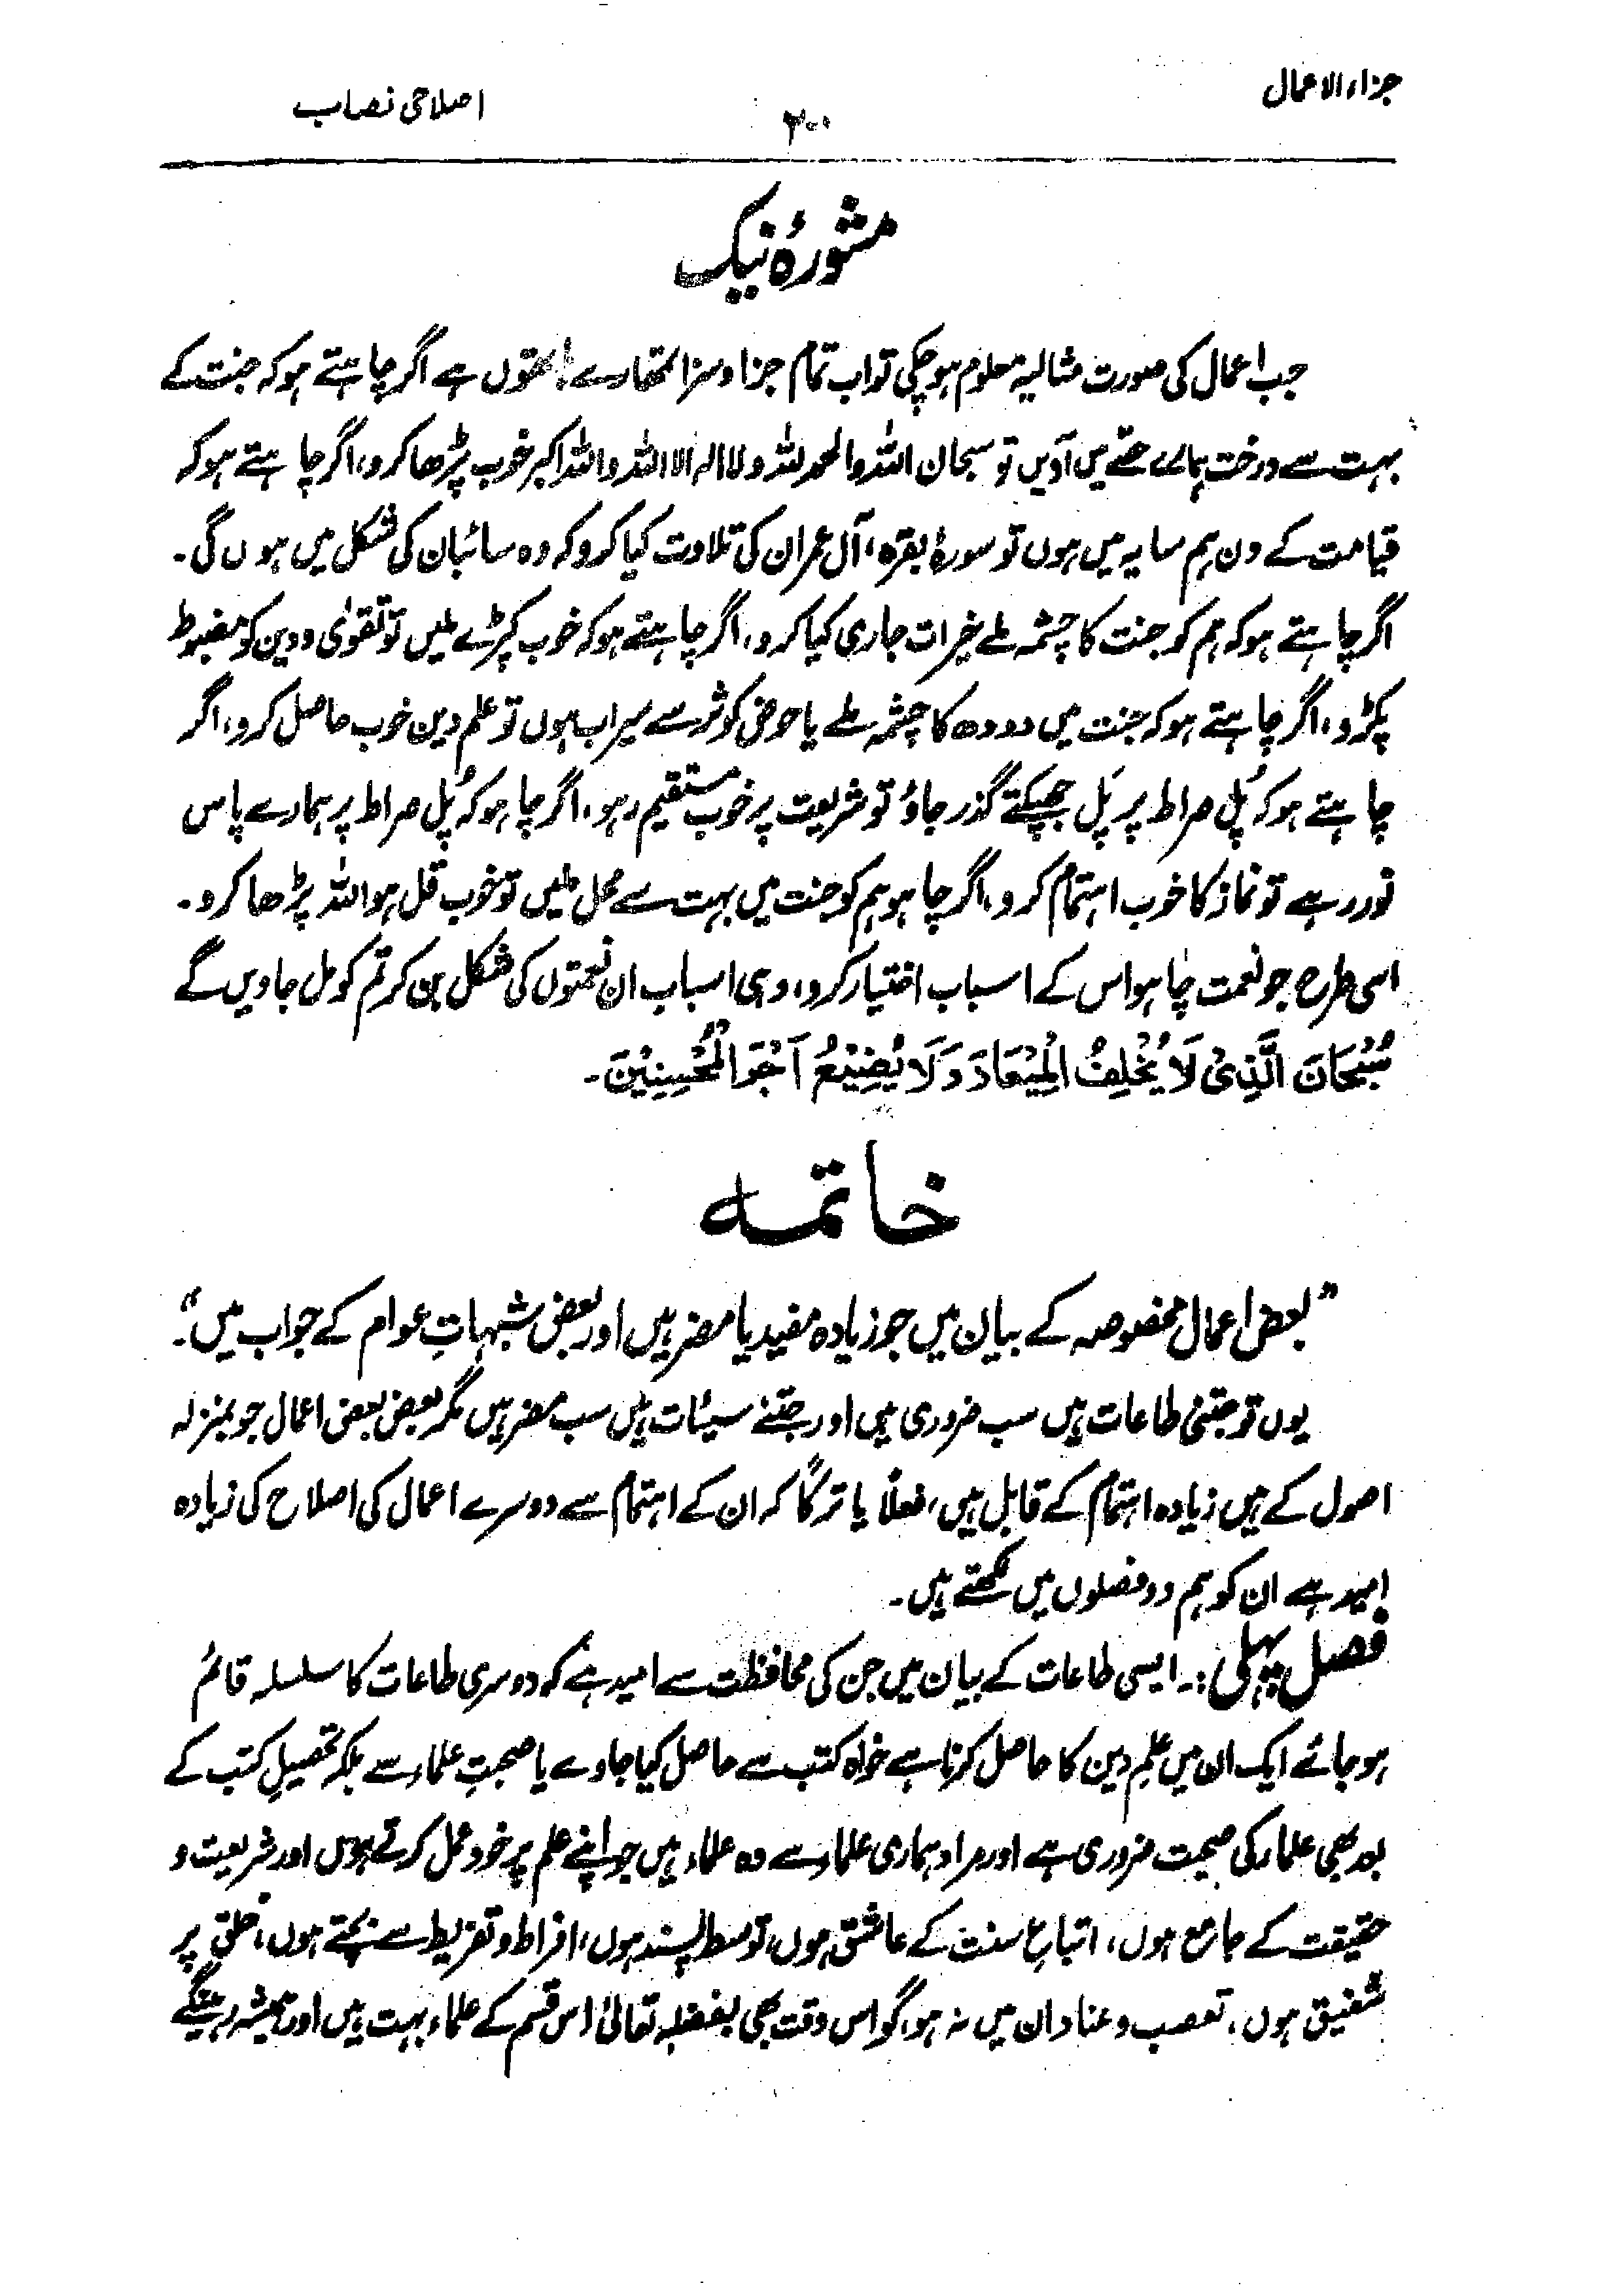 جزاء الاعمال
۳۰۰
اصلاحی نصاب
مشورۂ نیک
جب اعمال کی صورت مثالیہ معلوم ہوچکی تو اب تمام جزا و سزا تمھارے ہاتھوں ہے اگر چاہتے ہو کہ جنت کے
بہت سے درخت ہمارے حصّے میں آویں تو سبحان اللہ والحمد للہ ولا الہ الا اللہ واللہ اکبر خوب پڑھا کرو، اگر چاہتے ہو کہ
قیامت کے دن ہم سایہ میں ہوں تو سورۂ بقرہ، آل عمران کی تلاوت کیا کرو کہ وہ سائبان کی شکل میں ہوں گی۔
اگر چاہتے ہو کہ ہم کو جنت کا چشمہ ملے خیرات جاری کیا کرو، اگر چاہتے ہو کہ خوب کپڑے ملیں تو تقوٰی و دین کو مضبوط
پکڑو، اگر چاہتے ہو کہ جنت میں دودھ کا چشمہ ملے یا حوض کوثر سے سیراب ہوں تو علم دین خوب حاصل کرو، اگر
چاہتے ہو کہ پُل صراط پر پَل جھپکتے گذر جاؤ تو شریعت پر خوب مستقیم رہو، اگر چاہو کہ پُل صراط پر ہمارے پاس
نور رہے تو نماز کا خوب اہتمام کرو، اگر چاہو ہم کو جنت میں بہت سے محل ملیں تو خوب قل ہو اللہ پڑھا کرو۔
اسی طرح جو نعمت چاہو اس کے اسباب اختیار کرو، وہی اسباب ان نعمتوں کی شکل بن کر تم کو مل جاویں گے
سُبْحَانَ الَّذِیْ لَا یُخْلِفُ الْمِیْعَادَ وَلَا یُضِیْعُ اَجْرَ الْمُحْسِنِیْنَ۔
خاتمہ
”بعض اعمال مخصوصہ کے بیان میں جو زیادہ مفید یا مضر ہیں اور بعض شبہاتِ عوام کے جواب میں“۔
یوں تو جتنی طاعات ہیں سب ضروری ہیں اور جتنے سیئات ہیں سب مضر ہیں مگر بعض بعض اعمال جو بمنزلہ
اصول کے ہیں زیادہ اہتمام کے قابل ہیں، فعلاً یا ترکاً کہ ان کے اہتمام سے دوسرے اعمال کی اصلاح کی زیادہ
امید ہے ان کو ہم دو فصلوں میں لکھتے ہیں۔
فصل پہلی :۔ ایسی طاعات کے بیان میں جن کی محافظت سے امید ہے کہ دوسری طاعات کا سلسلہ قائم
ہو جائے ایک ان میں علمِ دین کا حاصل کرنا ہے خواہ کتب سے حاصل کیا جاوے یا صحبتِ علماء سے بلکہ تحصیلِ کتب کے
بعد بھی علماء کی صحبت ضروری ہے اور مراد ہماری علماء سے وہ علماء ہیں جو اپنے علم پر خود عمل کرتے ہوں اور شریعت و
حقیقت کے جامع ہوں، اتباعِ سنت کے عاشق ہوں، توسط پسند ہوں، افراط و تفریط سے بچتے ہوں، خلق پر
شفیق ہوں، تعصب و عناد ان میں نہ ہو، گو اس وقت بھی بفضلہ تعالیٰ اس قسم کے علماء بہت ہیں اور ہمیشہ رہینگے